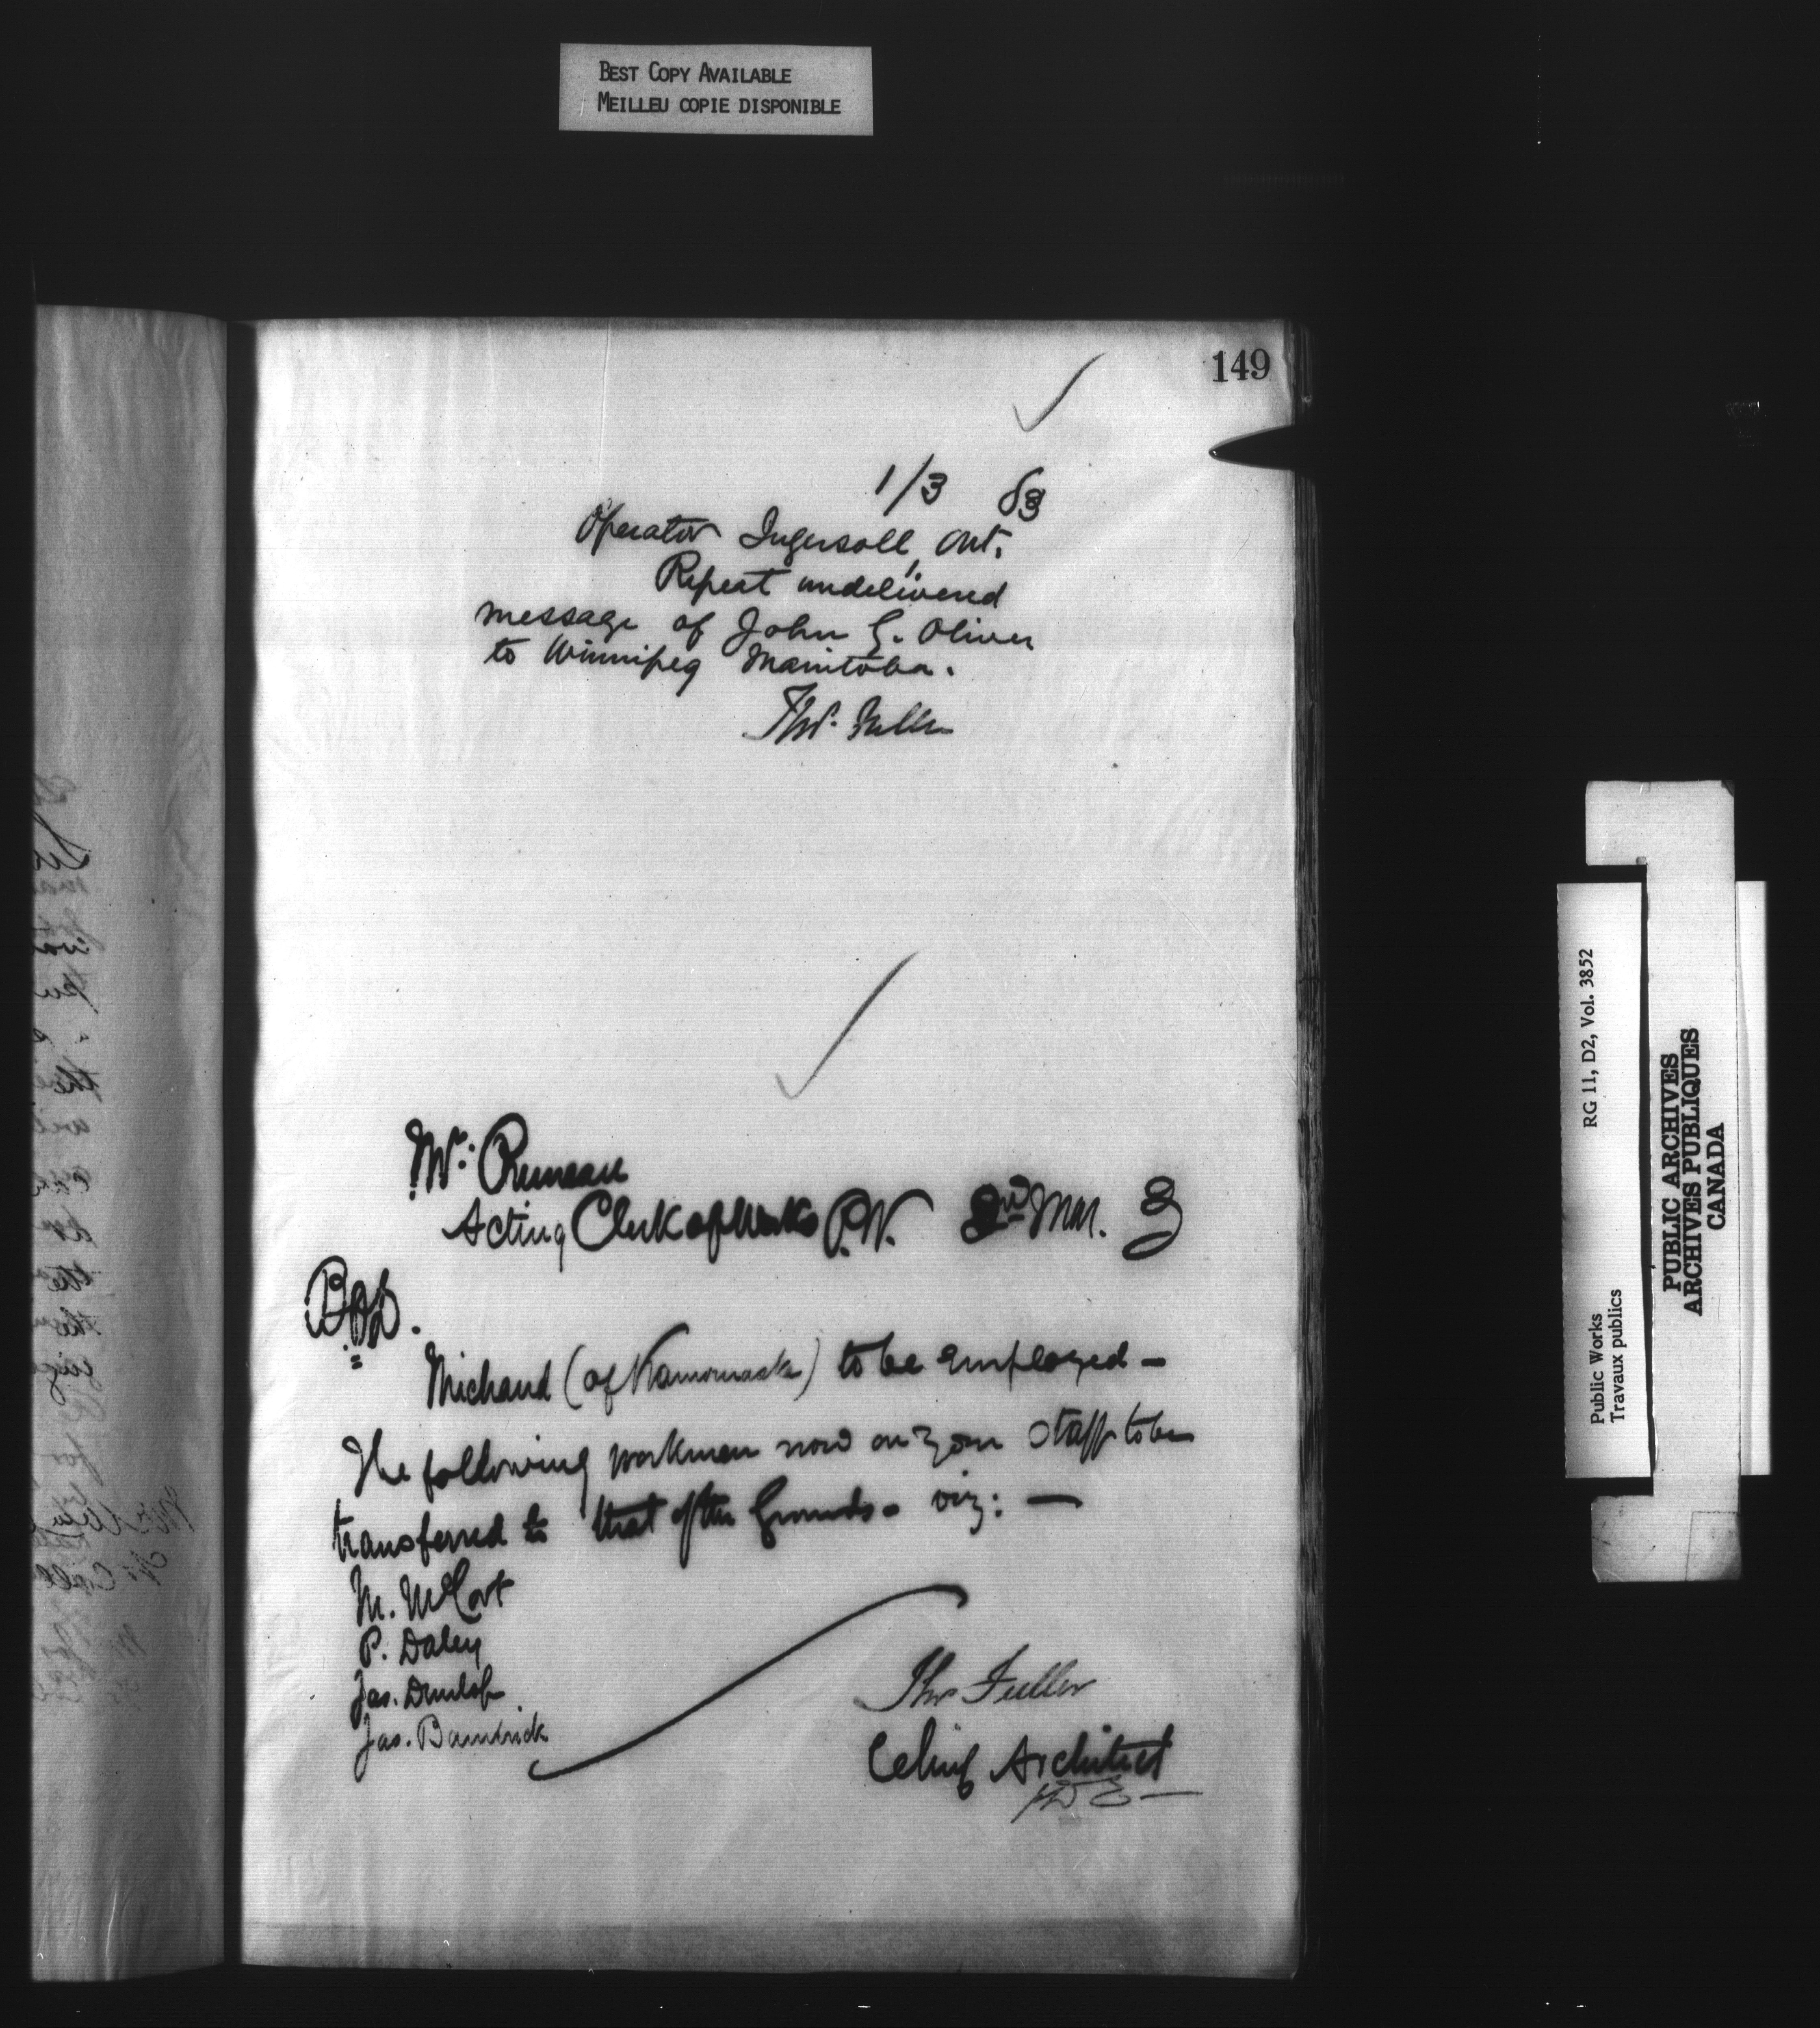 BEST COPY AVAILABLE
MEILLEU COPIE DISPONIBLE
149
1/3 83
Operator Ingersoll, Ont.
Repeat undelivered
message of John G. Oliver
to Winnipeg Manitoba.
Thos. Fuller
Mr.
Acting Clerk of Works P.W. 2nd Mar. 3
Michaud (of ) to be employed —
The following workmen now on your Staff to be
transferred to that of the Grounds - viz: —
M. McCort
P. Daley
Jas. Dunlop
Jas. Bambrick
Thos Fuller
Chief Architect
RG 11, D2, Vol. 3852
Public Works
Travaux publics
PUBLIC ARCHIVES
ARCHIVES PUBLIQUES
CANADA